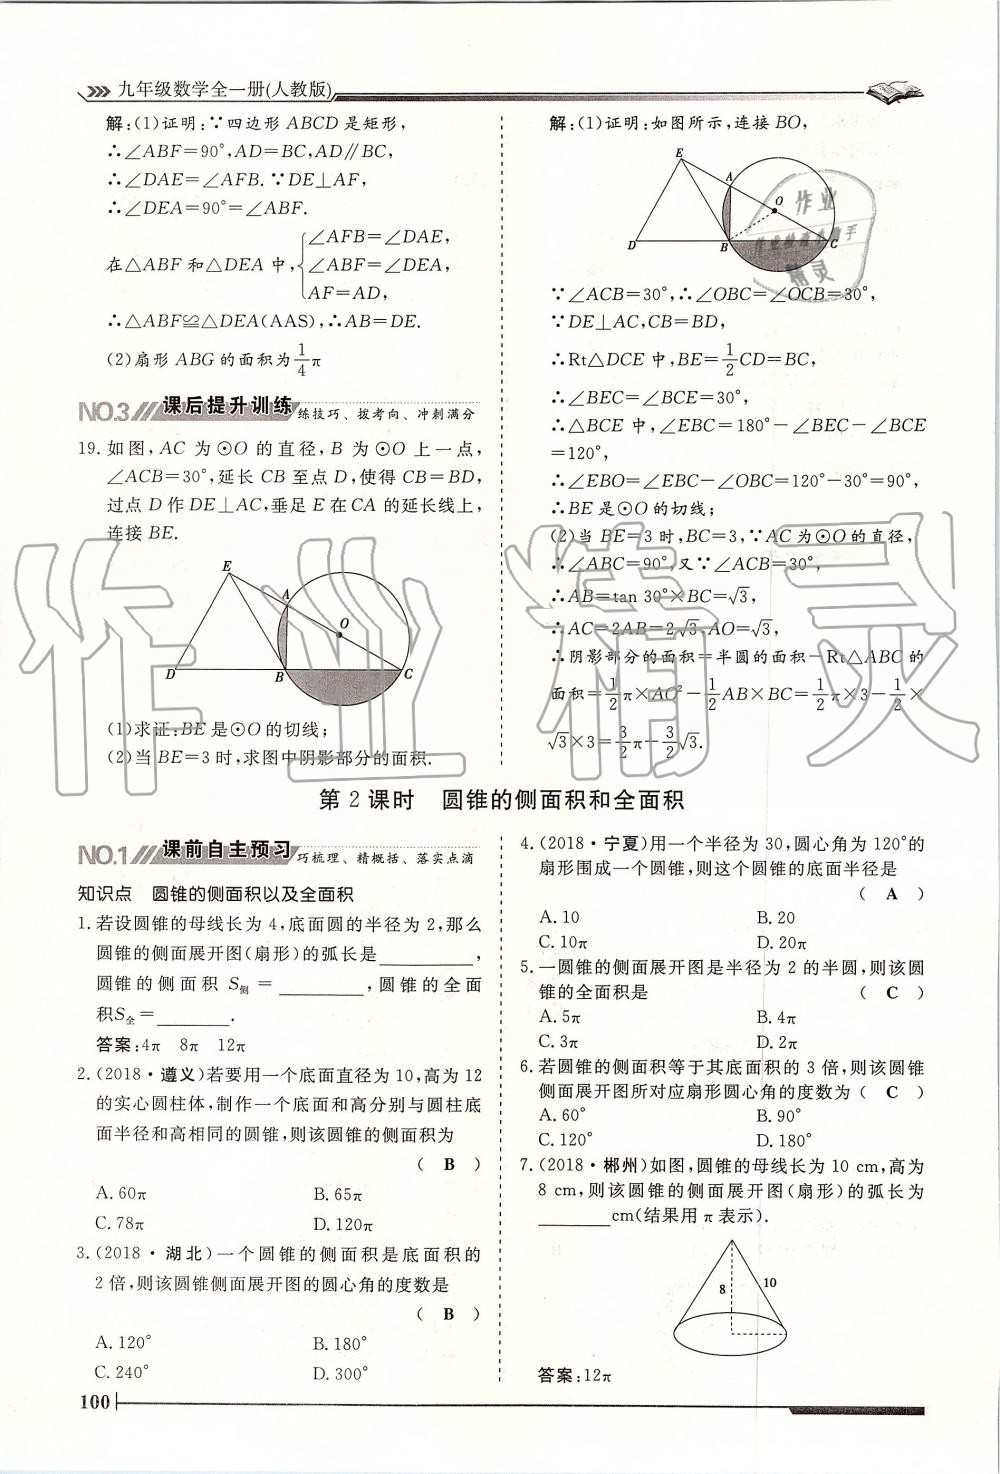 九年级数学全一册(人教版)
解:(1)证明:∵四边形 ABCD 是矩形,
∴∠ABF=90°,AD=BC,AD∥BC,
∴∠DAE=∠AFB.∵DE⊥AF,
∴∠DEA=90°=∠ABF.
在△ABF 和△DEA 中,
∠AFB=∠DAE,
∠ABF=∠DEA,
AF=AD,
∴△ABF≌△DEA(AAS),∴AB=DE.
(2)扇形 ABG 的面积为1/4π
NO.3 课后提升训练 练技巧、拔考向、冲刺满分
19.如图,AC 为⊙O 的直径,B 为⊙O 上一点,
∠ACB=30°,延长 CB 至点 D,使得 CB=BD,
过点 D 作 DE⊥AC,垂足 E 在 CA 的延长线上,
连接 BE.
E
A
O
D
B
C
(1)求证:BE 是⊙O 的切线;
(2)当 BE=3 时,求图中阴影部分的面积.
解:(1)证明:如图所示,连接 BO,
E
A
O
D
B
C
∵∠ACB=30°,∴∠OBC=∠OCB=30°,
∵DE⊥AC,CB=BD,
∴Rt△DCE 中,BE=1/2CD=BC,
∴∠BEC=∠BCE=30°,
∴△BCE 中,∠EBC=180°-∠BEC-∠BCE
=120°,
∴∠EBO=∠EBC-∠OBC=120°-30°=90°,
∴BE 是⊙O 的切线;
(2)当 BE=3 时,BC=3,∵AC 为⊙O 的直径,
∴∠ABC=90°,又∵∠ACB=30°,
∴AB=tan 30°×BC=√3,
∴AC=2AB=2√3,AO=√3,
∴阴影部分的面积=半圆的面积-Rt△ABC 的
面积=1/2π×AO²-1/2AB×BC=1/2π×3-1/2×
√3×3=3/2π-3/2√3.
第 2 课时 圆锥的侧面积和全面积
NO.1 课前自主预习 巧梳理、精概括、落实点滴
知识点 圆锥的侧面积以及全面积
1.若设圆锥的母线长为 4,底面圆的半径为 2,那么
圆锥的侧面展开图(扇形)的弧长是________,
圆锥的侧面积 S侧=________,圆锥的全面
积S全=________.
答案:4π 8π 12π
2.(2018·遵义)若要用一个底面直径为 10,高为 12
的实心圆柱体,制作一个底面和高分别与圆柱底
面半径和高相同的圆锥,则该圆锥的侧面积为
( B )
A.60π B.65π
C.78π D.120π
3.(2018·湖北)一个圆锥的侧面积是底面积的
2 倍,则该圆锥侧面展开图的圆心角的度数是
( B )
A.120° B.180°
C.240° D.300°
4.(2018·宁夏)用一个半径为 30,圆心角为 120°的
扇形围成一个圆锥,则这个圆锥的底面半径是
( A )
A.10 B.20
C.10π D.20π
5.一圆锥的侧面展开图是半径为 2 的半圆,则该圆
锥的全面积是 ( C )
A.5π B.4π
C.3π D.2π
6.若圆锥的侧面积等于其底面积的 3 倍,则该圆锥
侧面展开图所对应扇形圆心角的度数为( C )
A.60° B.90°
C.120° D.180°
7.(2018·郴州)如图,圆锥的母线长为 10 cm,高为
8 cm,则该圆锥的侧面展开图(扇形)的弧长为
________cm(结果用 π 表示).
8
10
答案:12π
100
作业精灵